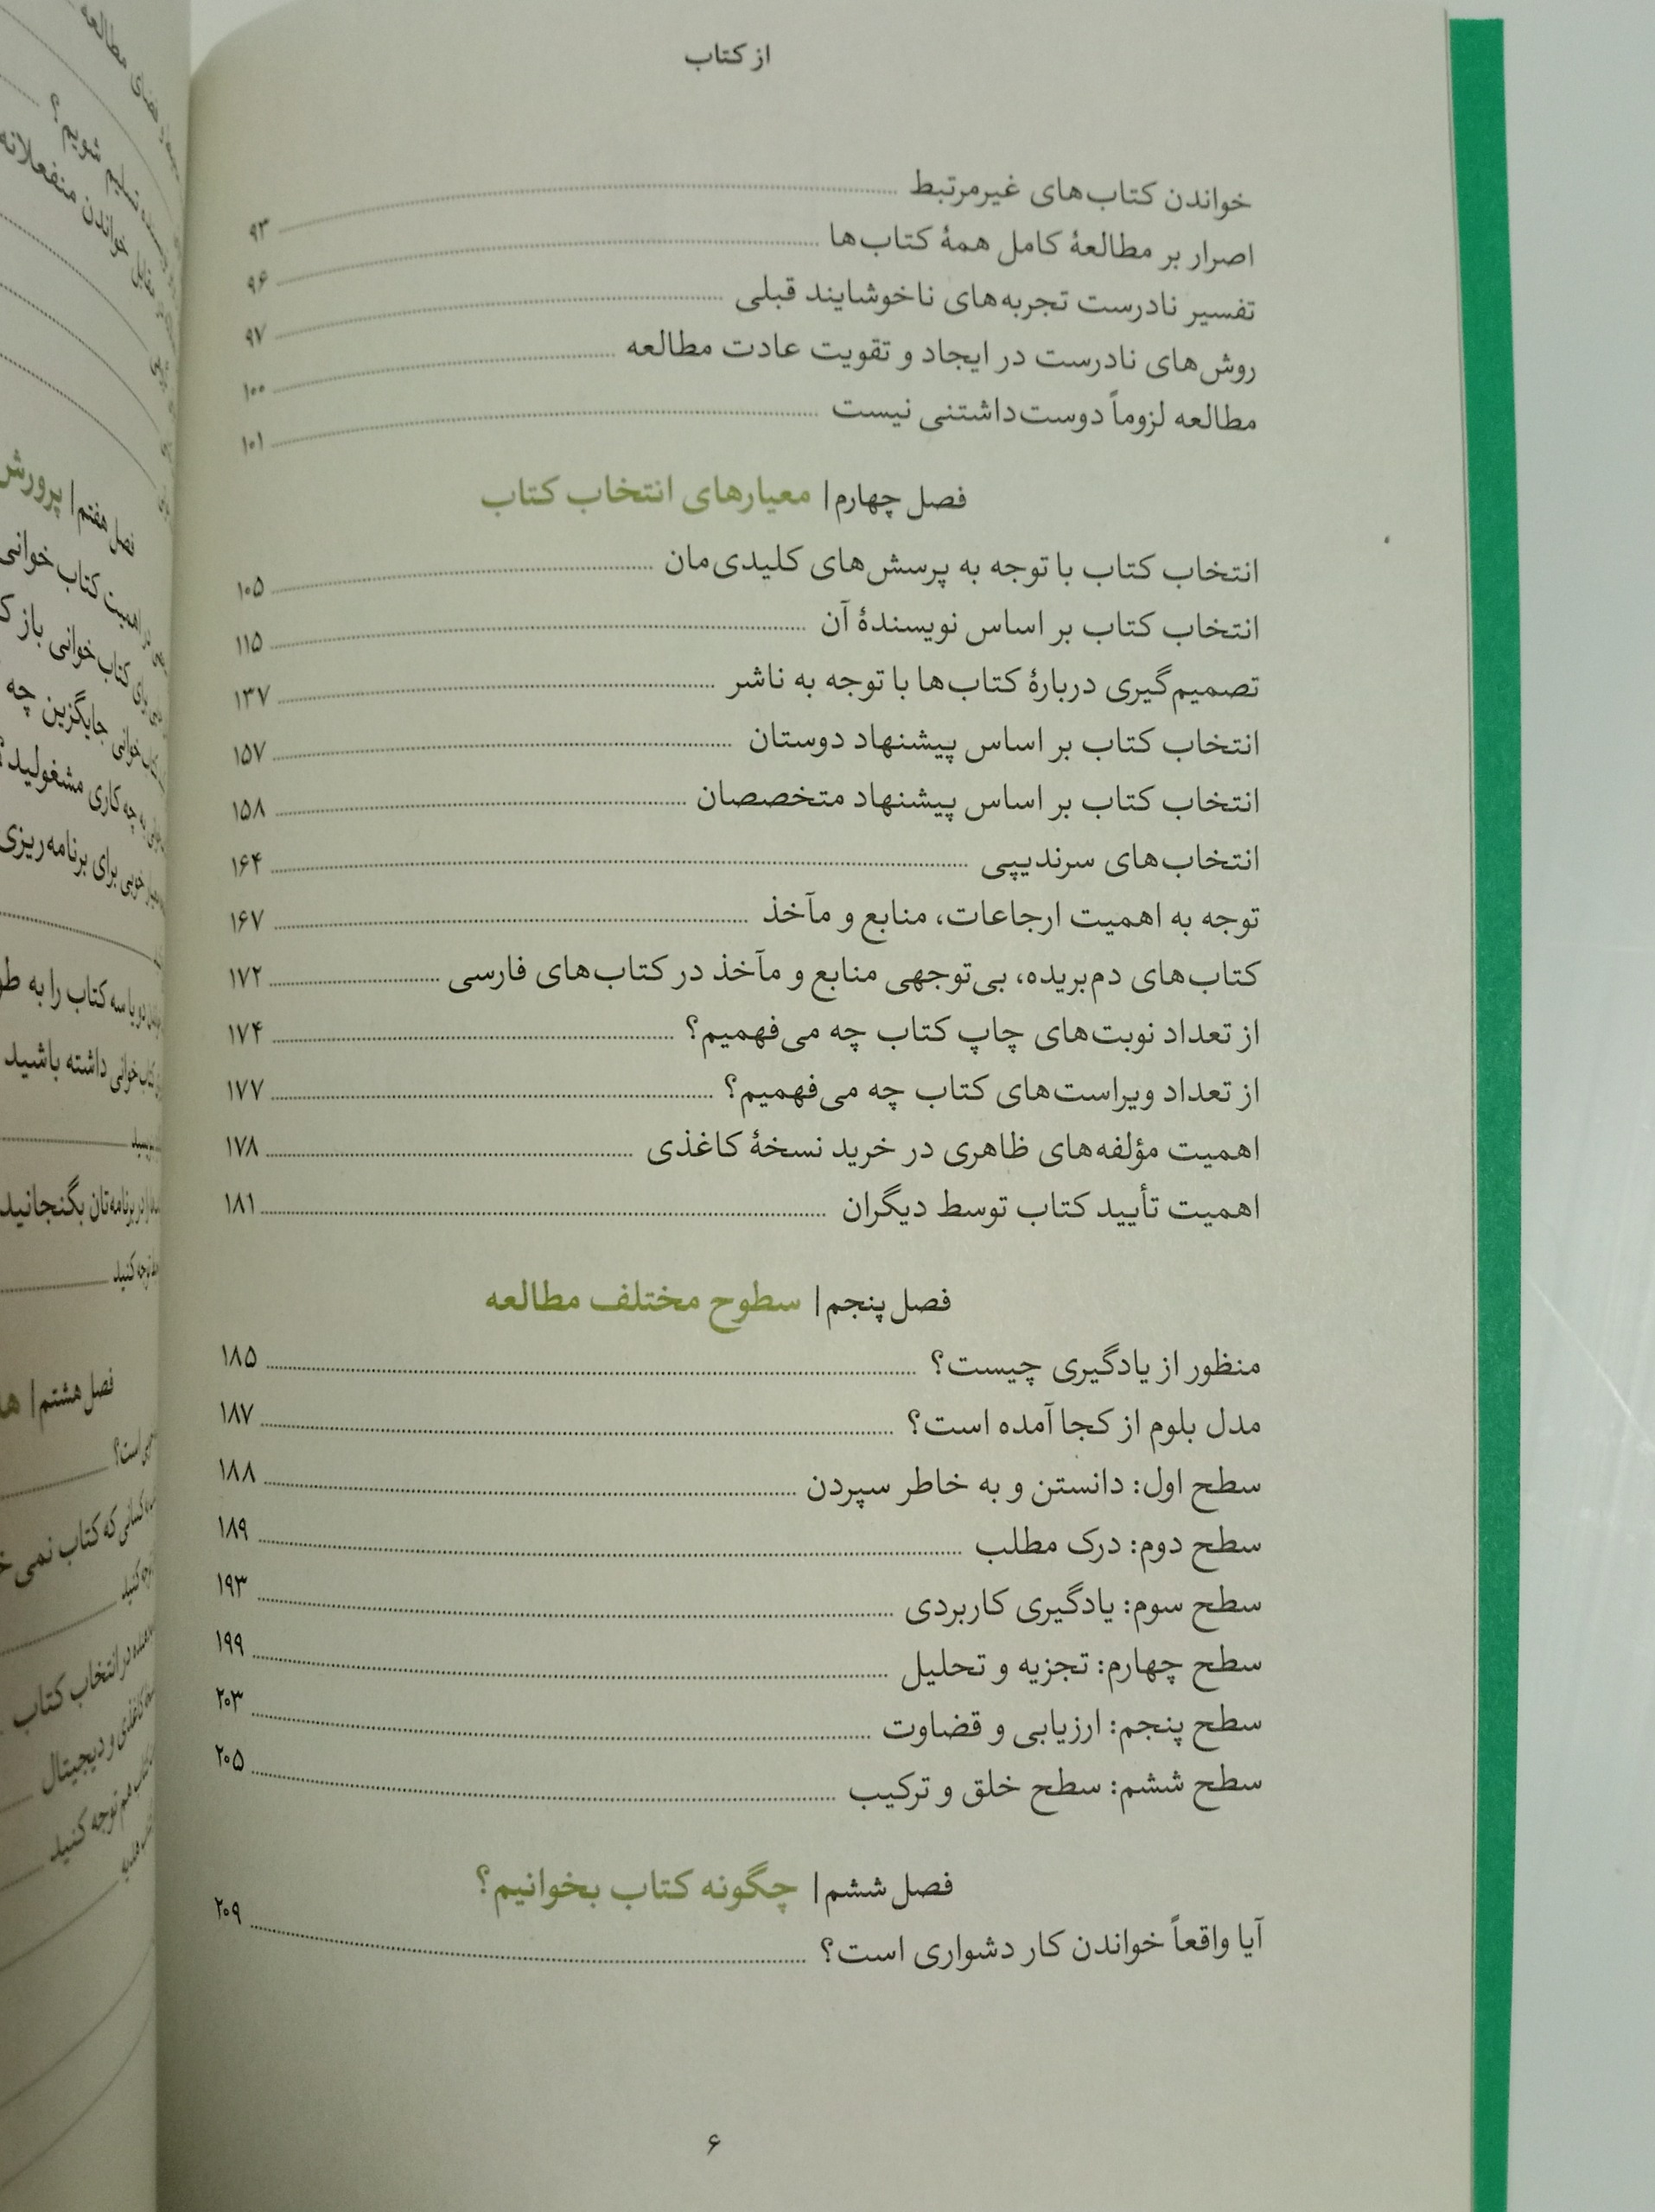 از کتاب
خواندن کتاب‌های غیرمرتبط ۹۳
اصرار بر مطالعهٔ کامل همهٔ کتاب‌ها ۹۶
تفسیر نادرست تجربه‌های ناخوشایند قبلی ۹۷
روش‌های نادرست در ایجاد و تقویت عادت مطالعه ۱۰۰
مطالعه لزوماً دوست‌داشتنی نیست ۱۰۱
فصل چهارم| معیارهای انتخاب کتاب
انتخاب کتاب با توجه به پرسش‌های کلیدی‌مان ۱۰۵
انتخاب کتاب بر اساس نویسندهٔ آن ۱۱۵
تصمیم‌گیری دربارهٔ کتاب‌ها با توجه به ناشر ۱۳۷
انتخاب کتاب بر اساس پیشنهاد دوستان ۱۵۷
انتخاب کتاب بر اساس پیشنهاد متخصصان ۱۵۸
انتخاب‌های سرندیپی ۱۶۴
توجه به اهمیت ارجاعات، منابع و مآخذ ۱۶۷
کتاب‌های دم‌بریده، بی‌توجهی منابع و مآخذ در کتاب‌های فارسی ۱۷۲
از تعداد نوبت‌های چاپ کتاب چه می‌فهمیم؟ ۱۷۴
از تعداد ویراست‌های کتاب چه می‌فهمیم؟ ۱۷۷
اهمیت مؤلفه‌های ظاهری در خرید نسخهٔ کاغذی ۱۷۸
اهمیت تأیید کتاب توسط دیگران ۱۸۱
فصل پنجم| سطوح مختلف مطالعه
منظور از یادگیری چیست؟ ۱۸۵
مدل بلوم از کجا آمده است؟ ۱۸۷
سطح اول: دانستن و به خاطر سپردن ۱۸۸
سطح دوم: درک مطلب ۱۸۹
سطح سوم: یادگیری کاربردی ۱۹۳
سطح چهارم: تجزیه و تحلیل ۱۹۹
سطح پنجم: ارزیابی و قضاوت ۲۰۳
سطح ششم: سطح خلق و ترکیب ۲۰۵
فصل ششم| چگونه کتاب بخوانیم؟
آیا واقعاً خواندن کار دشواری است؟ ۲۰۹
۶
مطالعه
تسلیم شویم؟
مقابل خواندن منفعلانه
فصل هفتم| پرورش
اهمیت کتاب خوانی
پای کتاب‌خوانی باز
کتاب‌خوانی جایگزین چه
چه کاری مشغولید؟
خوبی برای برنامه‌ریزی
دو یا سه کتاب را به
کتاب‌خوانی داشته باشید
در برنامه‌تان بگنجانید
توجه کنید
فصل هشتم|
است؟
کسانی که کتاب نمی
کنید
در انتخاب کتاب
کاغذی و دیجیتال
هم توجه کنید